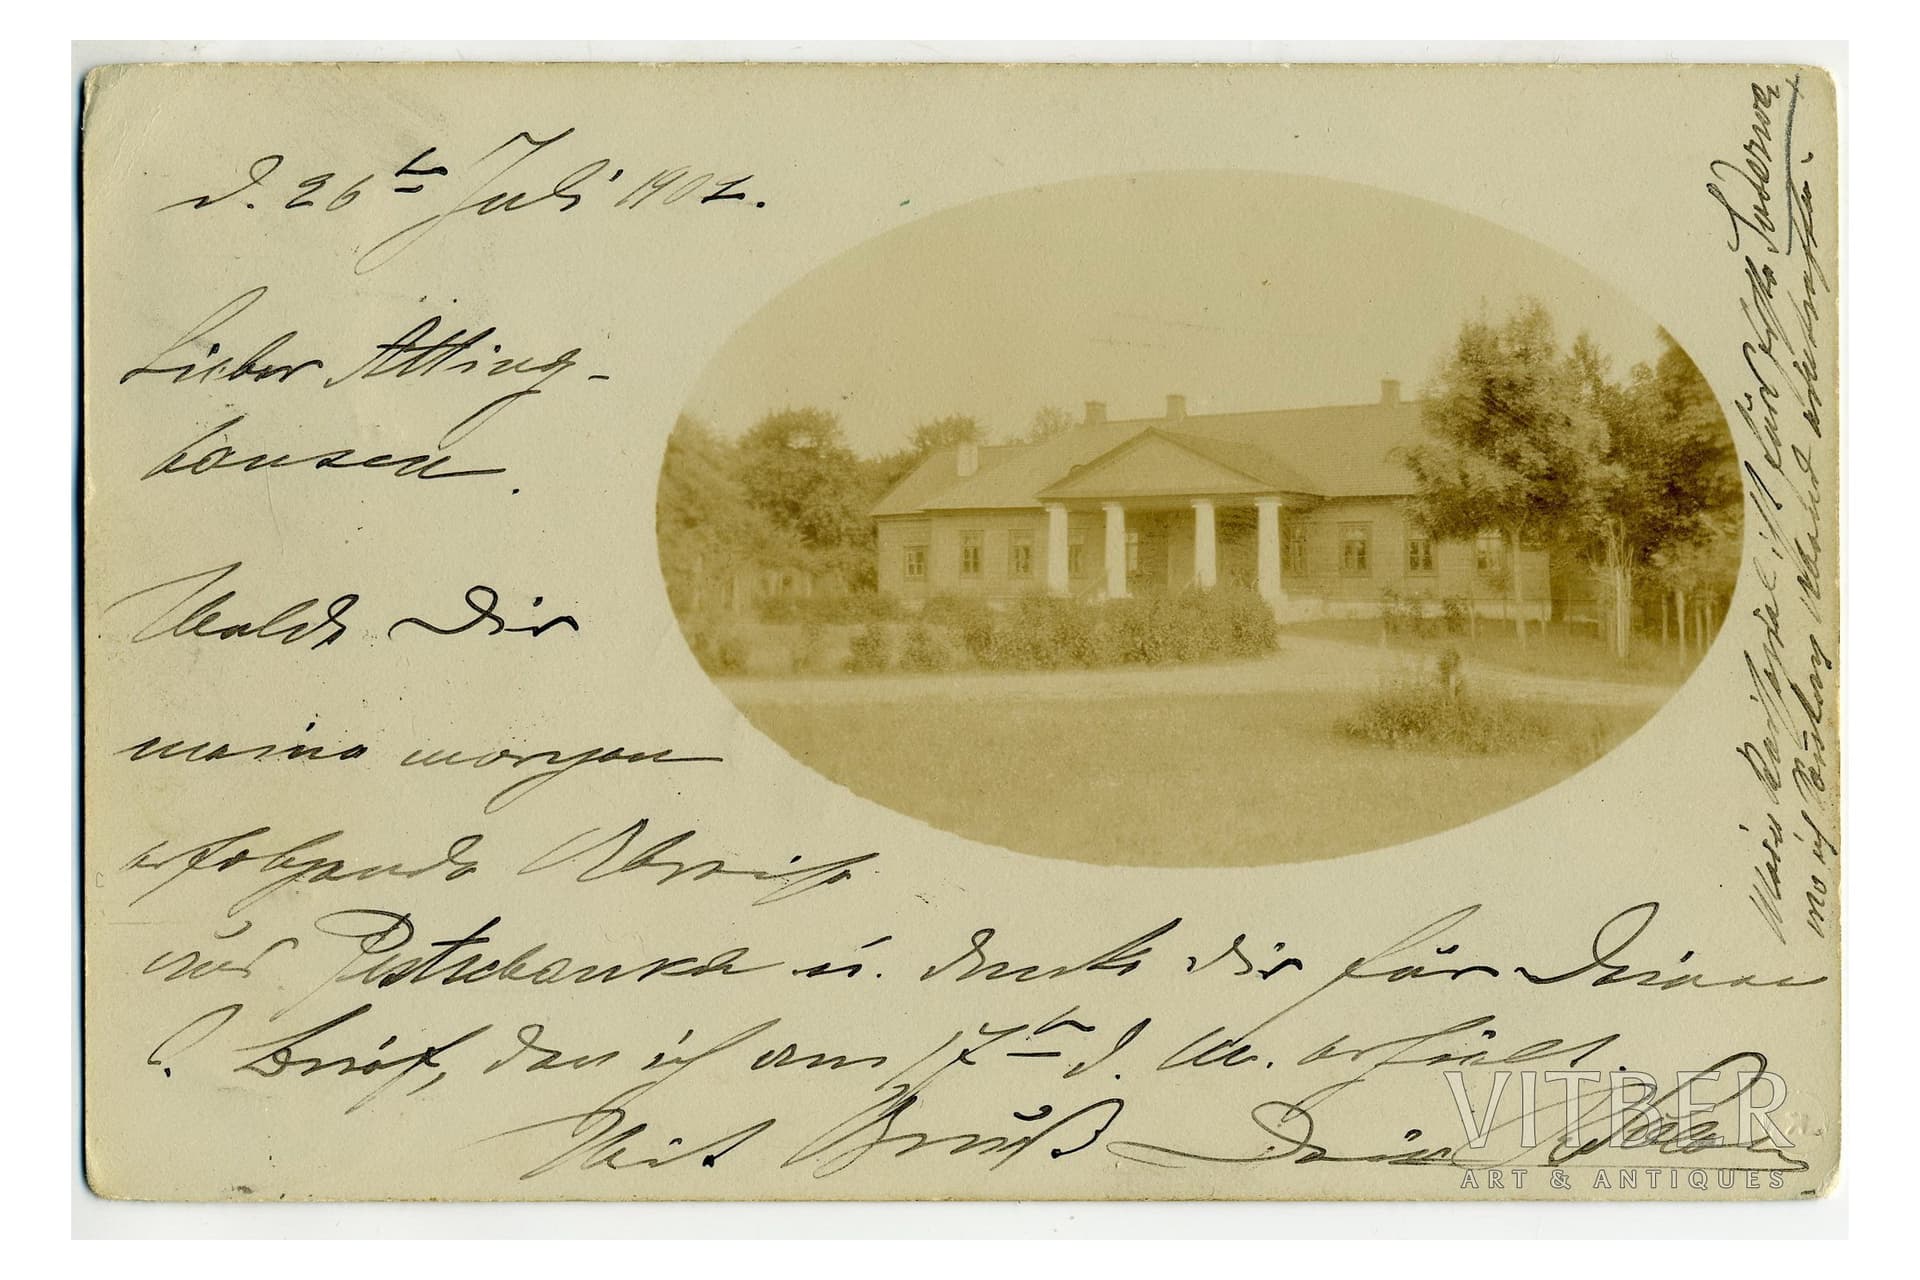 d. 26ten Juli 1902.
Lieber Atting-
hausen.
Melde Dir
meine morgen
erfolgende Abreise
aus Pustubanka u. danke Dir für Deinen
l. Brief, den ich am 17ten d. M. erhielt.
Mit Gruß Dein
Mein Reiseziel ist für
wo ich
VITBER
ART & ANTIQUES